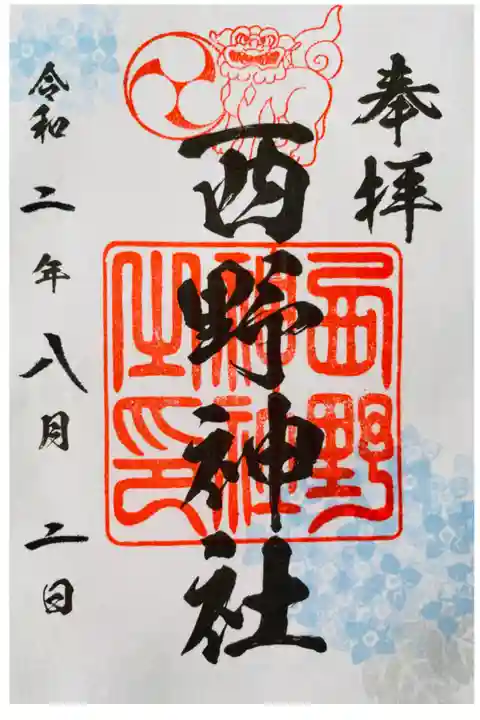 奉拝
西野神社
西野
神社
之印
令和二年八月二日